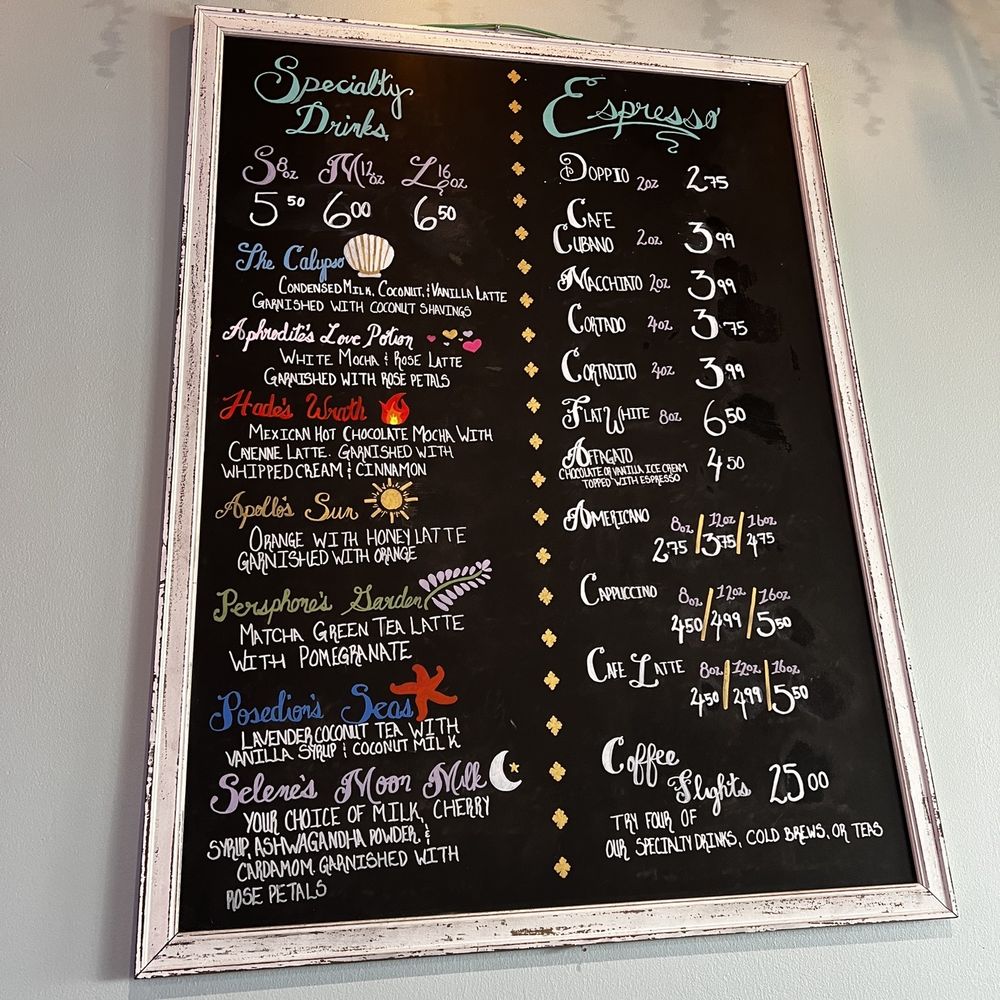 Specialty
Drinks
S 8oz M 12oz L 16oz
5 50 6 00 6 50
The Calypso
Condensed Milk, Coconut, & Vanilla Latte
Garnished with coconut shavings
Aphrodite's Love Potion
White Mocha & Rose Latte
Garnished with rose petals
Hade's Wrath
Mexican Hot Chocolate Mocha with
Cayenne Latte. Garnished with
whipped cream & cinnamon
Apollo's Sun
Orange with Honey Latte
Garnished with orange
Persphone's Garden
Matcha Green Tea Latte
with Pomegranate
Posedion's Seas
Lavender coconut tea with
vanilla syrup & coconut milk
Selene's Moon Milk
Your choice of milk, cherry
syrup, ashwagandha powder, &
cardamom. Garnished with
rose petals
Espresso
Doppio 2oz 2 75
Cafe
Cubano 2oz 3 99
Macchiato 2oz 3 99
Cortado 4oz 3 75
Cortadito 4oz 3 99
Flat White 8oz 6 50
Affagato 4 50
Chocolate or vanilla ice cream
topped with espresso
Americano 8oz 12oz 16oz
2 75 3 75 4 75
Cappuccino 8oz 12oz 16oz
4 50 4 99 5 50
Cafe Latte 8oz 12oz 16oz
4 50 4 99 5 50
Coffee
Flights 25 00
Try four of
our specialty drinks, cold brews, or teas